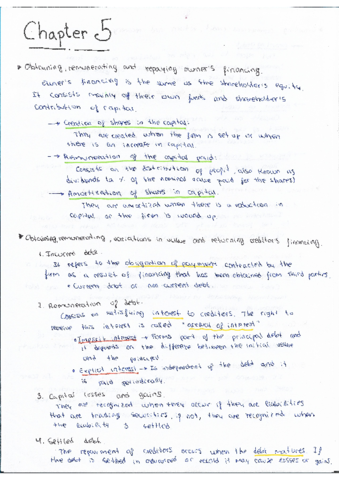 Chapter 5
▸ Obtaining, remunerating and repaying owner's financing.
Owner's financing is the same as the shareholder's equity.
It consists mainly of their own funds and shareholder's
contribution of capital.
→ Creation of shares in the capital:
They are created when the firm is set up or when
there is an increase in capital
→ Remuneration of the capital paid:
Consists on the distribution of profit, also known as
dividends (a % of the nominal value paid for the shares)
→ Amortization of shares in capital.
They are amortized when there is a reduction in
capital or the firm is wound up.
▸ Obtaining, remunerating, variations in value and returning creditors financing.
1. Incurred debt.
It refers to the obligation of payments contracted by the
firm as a result of financing that has been obtained from third parties
• Current debt or non current debt.
2. Remuneration of debt.
Consists on satisfying interest to creditors. The right to
receive this interest is called "accrual of interest"
• Implicit interest → Forms part of the principal debt and
it depends on the difference between the initial value
and the principal
• Explicit interest → Is independent of the debt and it
is paid periodically.
3. Capital losses and gains.
They are recognized when they occur if they are liabilities
that are trading securities, if not, they are recognized when
the liability is settled.
4. Settled debt
The repayment of creditors occurs when the debt matures. If
the debt is settled in advanced or it may cause losses or gains.